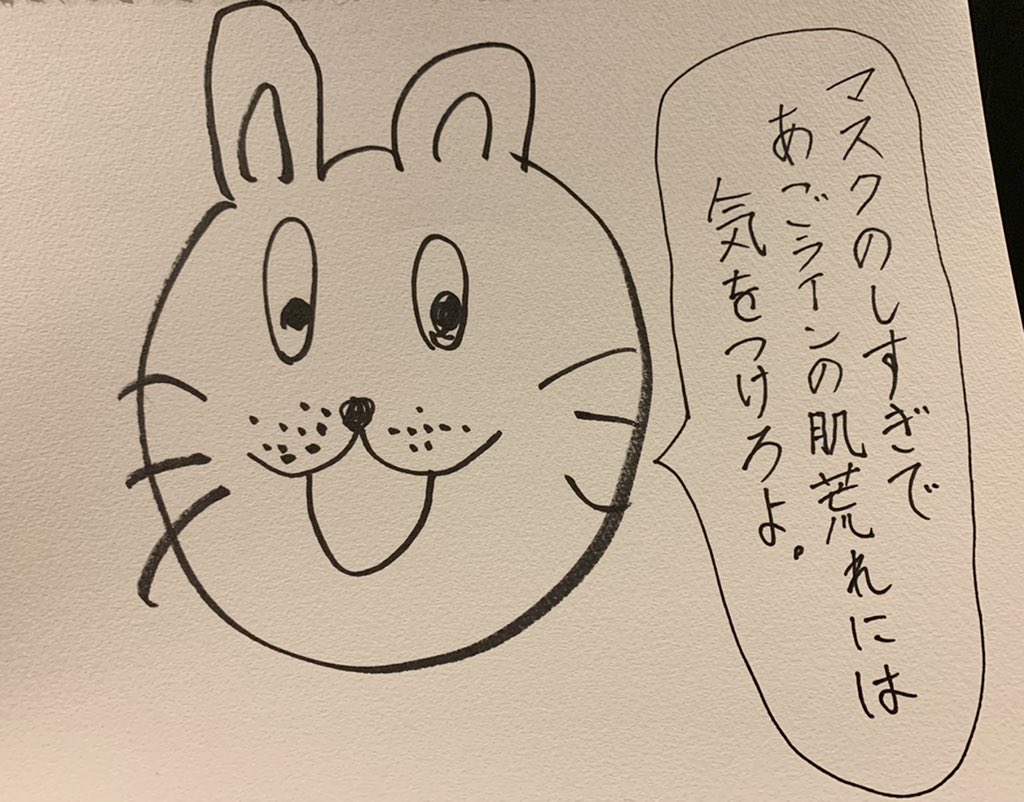 マスクのしすぎで
あごラインの肌荒れには
気をつけろよ。